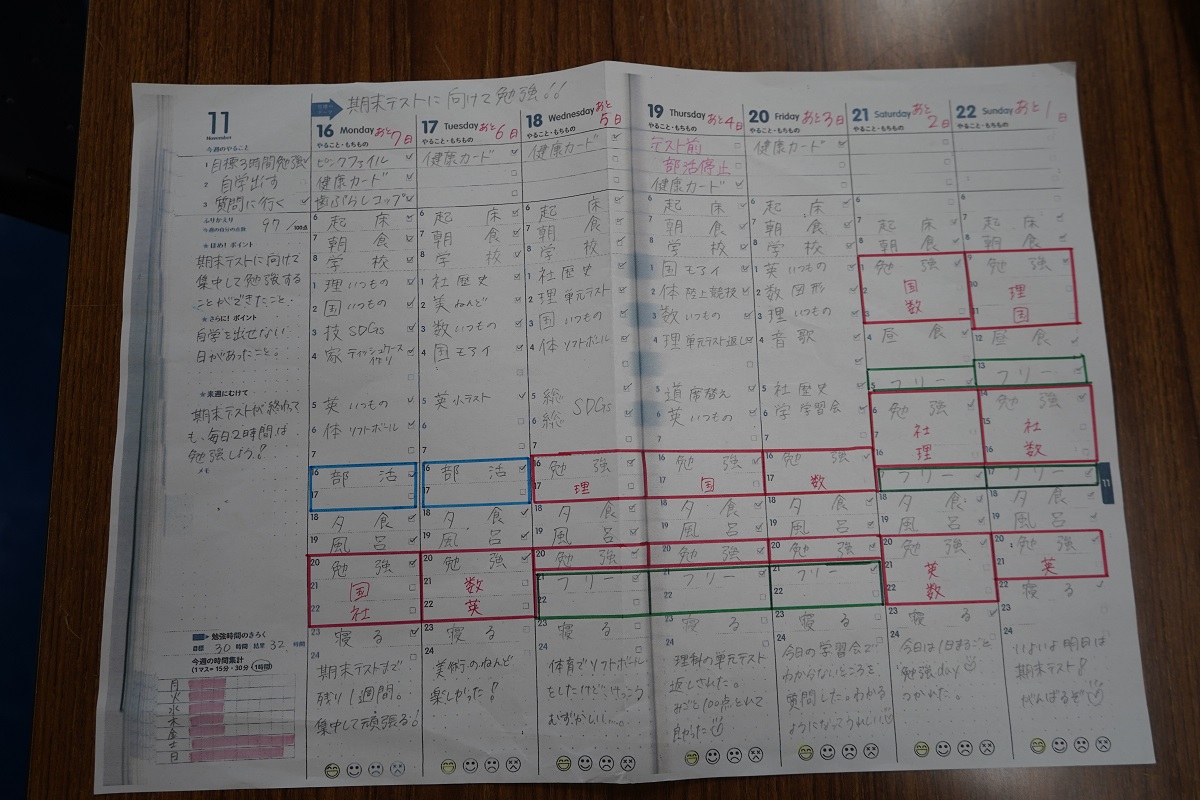 11
November
期末テストに向けて勉強!!
今週のやること
1 目標3時間勉強
2 自学出す
3 質問に行く
ふりかえり
今週の自分の点数
97 /100点
★ほめ!ポイント
期末テストに向けて
集中して勉強する
ことができたこと。
★さらに!ポイント
自学を出せない
日があったこと。
★来週にむけて
期末テストが終わって
も、毎日2時間は
勉強しよう!
メモ
勉強時間のきろく
目標 30 時間 結果 32 時間
今週の時間集計
(1マス=15分・30分・1時間)
月
火
水
木
金
土
日
16 Monday あと7日
やること・もちもの
ピンクファイル
健康カード
歯ぶらしコップ
6 起床
7 朝食
8 学校
1 理 いつもの
2 国 いつもの
3 技 SDGs
4 家 ティッシュケース
作り
5 英 いつもの
6 体 ソフトボール
7
16 部活
17
18 夕食
19 風呂
20 勉強
21 国
22 社
23 寝る
24
期末テストまで
残り1週間。
集中して頑張る!
17 Tuesday あと6日
やること・もちもの
健康カード
6 起床
7 朝食
8 学校
1 社 歴史
2 美 ねんど
3 数 いつもの
4 国 モアイ
5 英 小テスト
6
7
16 部活
17
18 夕食
19 風呂
20 勉強
21 数
22 英
23 寝る
24
美術のねんど
楽しかった!
18 Wednesday あと5日
やること・もちもの
健康カード
6 起床
7 朝食
8 学校
1 社 歴史
2 理 単元テスト
3 国 いつもの
4 体 ソフトボール
5 総
6 総 SDGs
7
16 勉強
17 理
18 夕食
19 風呂
20 勉強
21 フリー
22
23 寝る
24
体育でソフトボール
をしたけど、けっこう
むずかしい…。
19 Thursday あと4日
やること・もちもの
テスト前
部活停止
健康カード
6 起床
7 朝食
8 学校
1 国 モアイ
2 体 陸上競技
3 数 いつもの
4 理 単元テスト返し
5 道 席替え
6 英 いつもの
7
16 勉強
17 国
18 夕食
19 風呂
20 勉強
21 フリー
22
23 寝る
24
理科の単元テスト
返しされた。
みごと100点とれて
良かった
20 Friday あと3日
やること・もちもの
健康カード
6 起床
7 朝食
8 学校
1 英 いつもの
2 数 図形
3 理 いつもの
4 音 歌
5 社 歴史
6 学 学習会
7
16 勉強
17 数
18 夕食
19 風呂
20 勉強
21 フリー
22
23 寝る
24
今日の学習会で
わからないところを
質問した。わかる
ようになってうれしい
21 Saturday あと2日
やること・もちもの
6
7 起床
8 朝食
1 勉強
2 国
3 数
4 昼食
5 フリー
6 勉強
7 社
16 理
17 フリー
18 夕食
19 風呂
20 勉強
21 英
22 数
23 寝る
24
今日は1日まるごと
勉強day
つかれた。
22 Sunday あと1日
やること・もちもの
6
7 起床
8 朝食
9 勉強
10 理
11 国
12 昼食
13 フリー
14 勉強
15 社
16 数
17 フリー
18 夕食
19 風呂
20 勉強
21 英
22 寝る
23
24
いよいよ明日は
期末テスト!
がんばるぞ
11